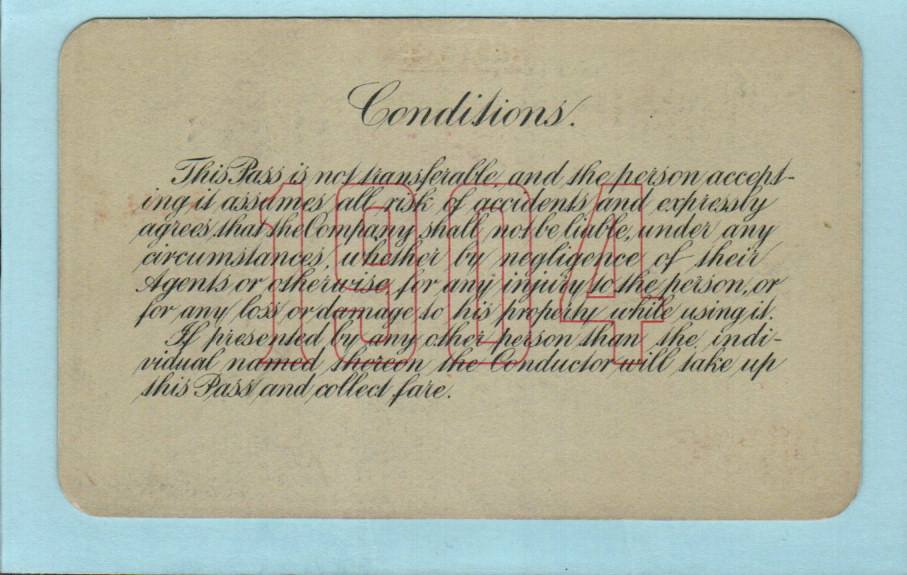 Conditions.
This Pass is not transferable and the person accept-
ing it assumes all risk of accidents and expressly
agrees that the Company shall not be liable, under any
circumstances, whether by negligence of their
Agents or otherwise, for any injury to the person, or
for any loss or damage to his property while using it.
If presented by any other person than the indi-
vidual named thereon the Conductor will take up
this Pass and collect fare.
1904